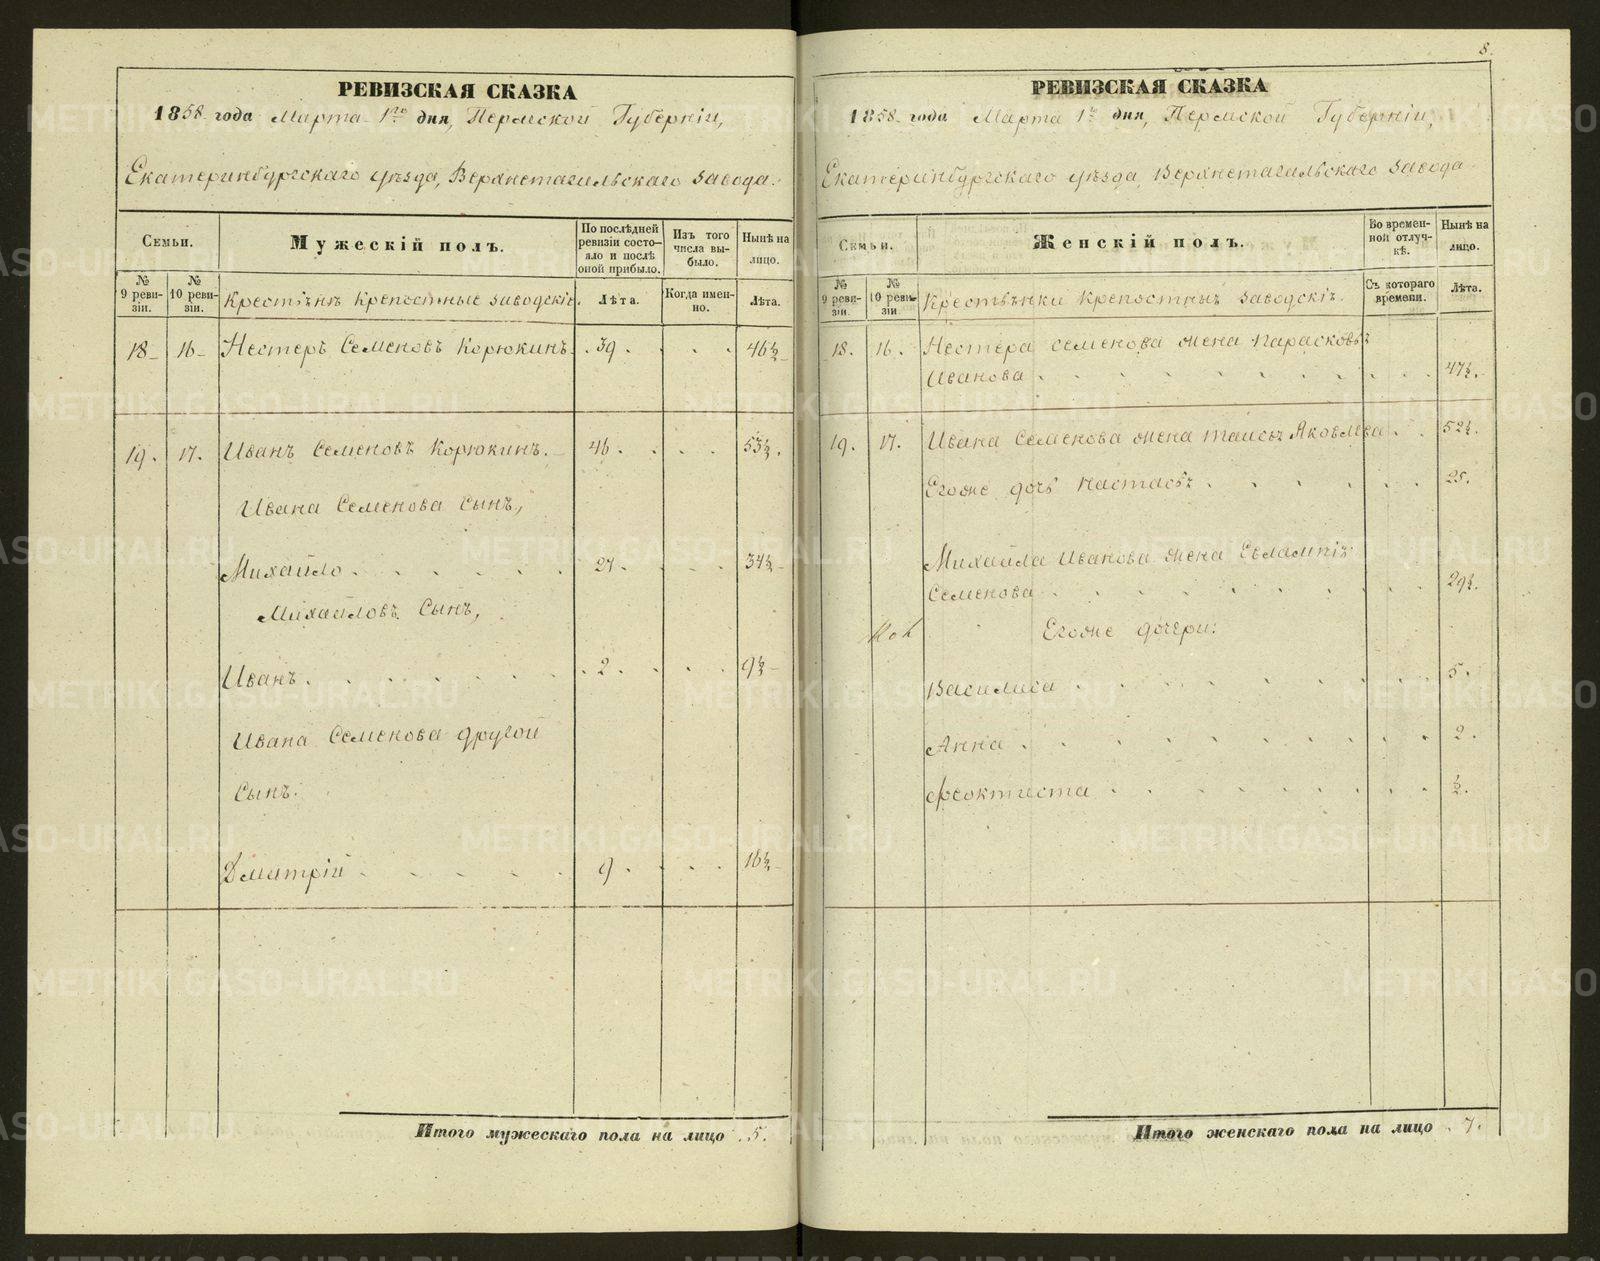 8.
РЕВИЗСКАЯ СКАЗКА
1858 года Марта 1го дня, Пермской Губерніи,
Екатеринбургскаго уѣзда, Верхнетагильскаго завода.
Семьи.
Мужескій полъ.
По послѣдней ревизіи состояло и послѣ оной прибыло.
Изъ того числа выбыло.
Нынѣ на лицо.
№ 9 ревизіи.
№ 10 ревизіи.
Крестьяне крепостные заводскіе.
Лѣта.
Когда именно.
Лѣта.
18 16 Нестеръ Семеновъ Корюкинъ. 39. 46½
19. 17. Иванъ Семеновъ Корюкинъ. 46. 53½.
Ивана Семенова сынъ,
Михайло 27. 34½
Михайловъ сынъ,
Иванъ. 2. 9½
Ивана Семенова другой
сынъ.
Дмитрій 9. 16½
Итого мужескаго пола на лицо 5.
РЕВИЗСКАЯ СКАЗКА
1858 года Марта 1го дня, Пермской Губерніи,
Екатеринбургскаго уѣзда, Верхнетагильскаго завода
Семьи.
Женскій полъ.
Во временной отлучкѣ.
Нынѣ на лицо.
№ 9 ревизіи.
№ 10 ревизіи
Крестьянки крепостныя заводскія.
Съ котораго времени.
Лѣта.
18. 16. Нестера Семенова жена Парасковья
Иванова 47½.
19. 17. Ивана Семенова жена Таисья Яковлева 52½.
Егоже дочь Настасья 25.
Михайла Иванова жена Евлампія
Семенова 29½.
Егоже дочери:
Василиса 5.
Анна 2.
Феоктиста ½.
Итого женскаго пола на лицо 7.
METRIKI.GASO-URAL.RU